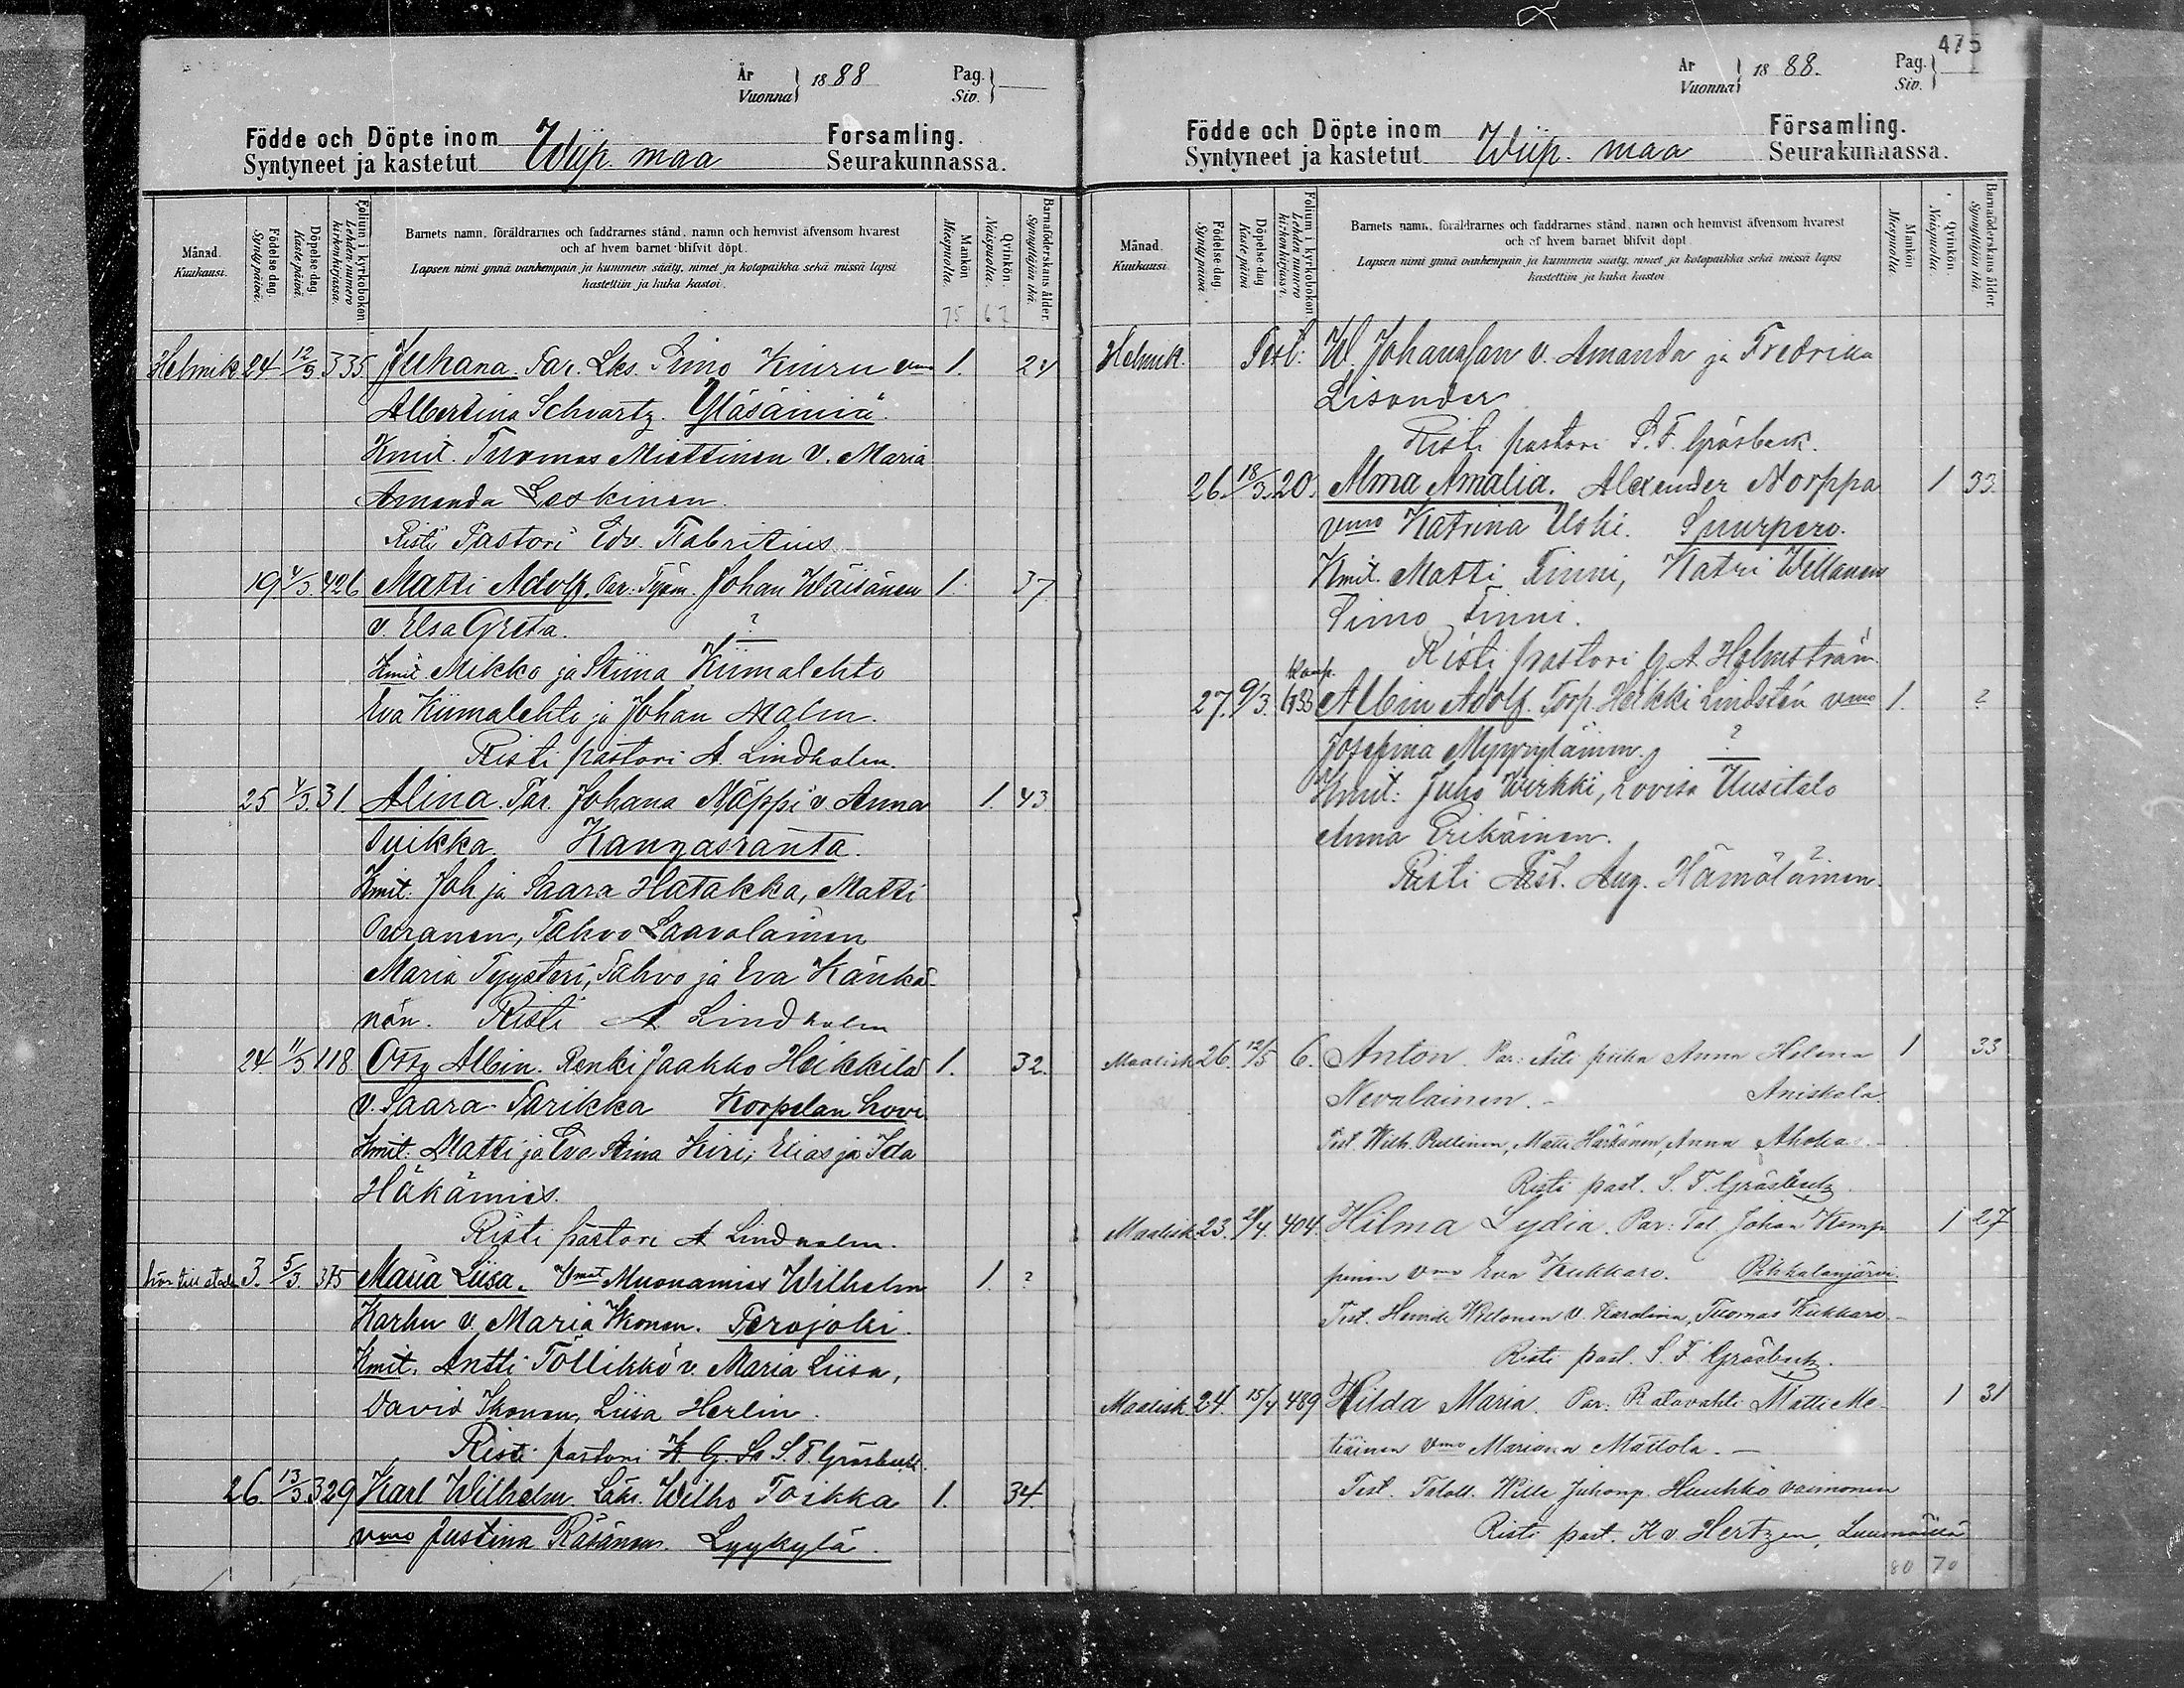 År Vuonna } 1888 Pag. Siv. } —
Födde och Döpte inom Församling.
Syntyneet ja kastetut Wiip. maa Seurakunnassa.
Månad. Kuukausi.
Födelse dag. Synty päivä.
Döpelse dag. Kaste päivä.
Folium i kyrkoboken. Lehden numero kirkonkirjassa.
Barnets namn, föräldrarnes och faddrarnes stånd, namn och hemvist äfvensom hvarest
och af hvem barnet blifvit döpt.
Lapsen nimi ynnä vanhempain ja kummein sääty, nimet ja kotopaikka sekä missä lapsi
kastettiin ja kuka kastoi.
Mankön. Miespuolia. 75
Qvinkön. Naispuolia. 62
Barnaföderskans ålder. Synnyttäjän ikä.
Helmik 24 12/3 335 Juhana. Par. Lks. Simo Kiuru vmo 1. 24
Albertina Schvartz. Yläsäiniä.
Kmit. Tuomas Miettinen v. Maria
Amanda Leskinen.
Risti Pastori Edv. Fabritius
19 4/3. 426 Matti Adolf. Par: Työm. Johan Wäisänen 1. 37
v. Elsa Greta. ?
Kmit Mikko ja Stiina Kiimalehto
Eva Kiimalehto ja Johan Malm.
Risti pastori A. Lindholm.
25 4/3. 31. Alina. Par. Johana Näppi v. Anna 1. 43
Suikka Kangasranta.
Kmit: Joh ja Saara Hatakka, Matti
Ouranen, Tahvo Laavolainen
Maria Tyysteri, Tahvo ja Eva Känkä-
nän. Risti A Lindholm
24. 11/3 118. Otto Albin. Renki Jaakko Heikkilä 1. 32.
v. Saara Sarikka Korpelan hovi
Kmit: Matti ja Eva Stina Kiri, Elias ja Ida
Häkämies.
Risti pastori A Lindholm.
hör till staden 3. 5/3. 375 Maria Liisa. Vmat Muonamies Wilhelm 1. ?
Karhu v. Maria Ikonen. Terojoki.
Kmit. Antti Töllikkö v. Maria Liisa,
David Ikonen, Liisa Herlin.
Risti pastori S. F. Gräsbeck.
26. 13/3. 329 Karl Wilhelm Läks. Wilho Toikka 1. 34.
vmo Justina Räsänen. Lyykylä.
475
År Vuonna } 1888. Pag. Siv. }
Födde och Döpte inom Församling.
Syntyneet ja kastetut Wiip. maa Seurakunnassa.
Månad. Kuukausi
Födelse dag. Synty päivä.
Döpelse dag Kaste päivä
Folium i kyrkoboken. Lehden numero kirkonkirjassa.
Barnets namn, föräldrarnes och faddrarnes stånd, namn och hemvist äfvensom hvarest
och af hvem barnet blifvit döpt.
Lapsen nimi ynnä vanhempain ja kummein sääty, nimet ja kotopaikka sekä missä lapsi
kastettiin ja kuka kastoi
Mankön Miespuolia
Qvinkön. Naispuolia.
Barnaföderskans ålder. Synnyttäjän ikä.
Helmik. Test: W. Johansson v. Amanda ja Fredrika
Lisander
Risti pastori S. F. Gräsbeck.
26. 18/3. 20. Alma Amalia. Alexander Norppa 1 33.
vmo Katrina Uski. Suurpero.
Kmit. Matti Finni, Katri Willanen
Simo Finni.
Risti pastori G A Holmström
27. 9/3. Kamp. Albin Adolf. Torp. Heikki Lindstén vmo 1. ?
Josefina Myyryläinen, ?
Kmit: Juho Wirkki, Lovisa Uusitalo
Anna Erikäinen.
Risti Past. Aug. Hämäläinen.
Maalisk 26. 12/5 6. Anton. Par: Äiti piika Anna Helena 1 33
Nevalainen. – Aniskala.
Test. Wilh. Pullinen, Matti Härkönen, Anna Ahokas. –
Risti past. S. F. Gräsbeck.
Maalisk 23. 404. Hilma Lydia. Par: Tal. Johan Kemp- 1 27
pinen vmo Eva Kukkaro. Pihkalanjärvi.
Test. Henrik Willonen v. Karolina, Tuomas Kukkaro. –
Risti past. S. F. Gräsbeck.
Maalisk. 24. 15/4 489 Hilda Maria. Par: Ratavahti Matti Ma- 1 31
tiäinen vmo Mariana Mattola. –
Test. Taloll. Wille Juhonp. Huuhko vaimonen
Risti past. K v. Hertzen, Luumäellä
80 70